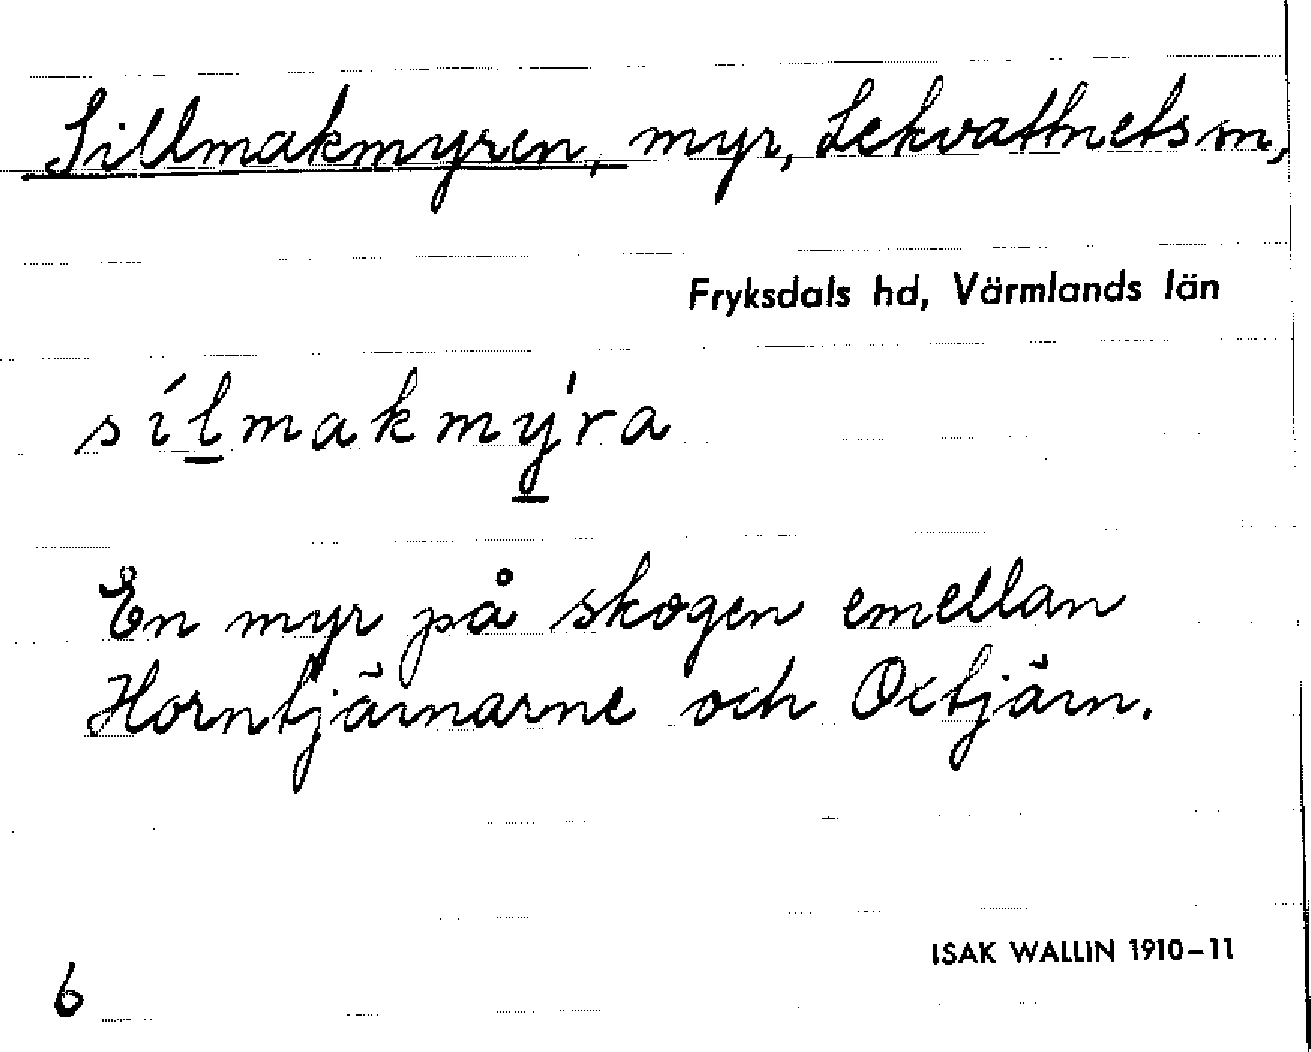 Sillmakmyren, myr, Lekvattnets sn,
Fryksdals hd, Värmlands län
sílmakmy'ra
En myr på skogen emellan
Horntjärnarne och Oxtjärn.
ISAK WALLIN 1910–11
6